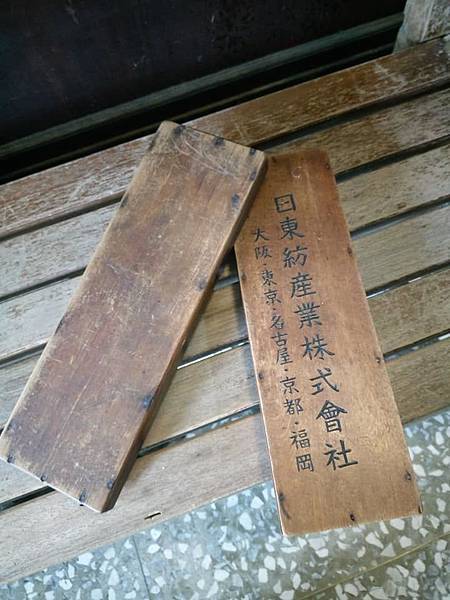 日東紡産業株式會社
大阪・東京・名古屋・京都・福岡